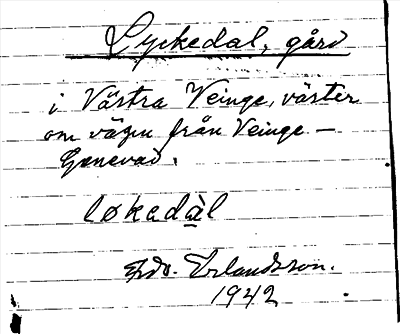 Lyckedal, gård
i Västra Veinge, väster
om vägen från Veinge –
Genevad.
løkedàl
Edv. Erlandsson.
1942